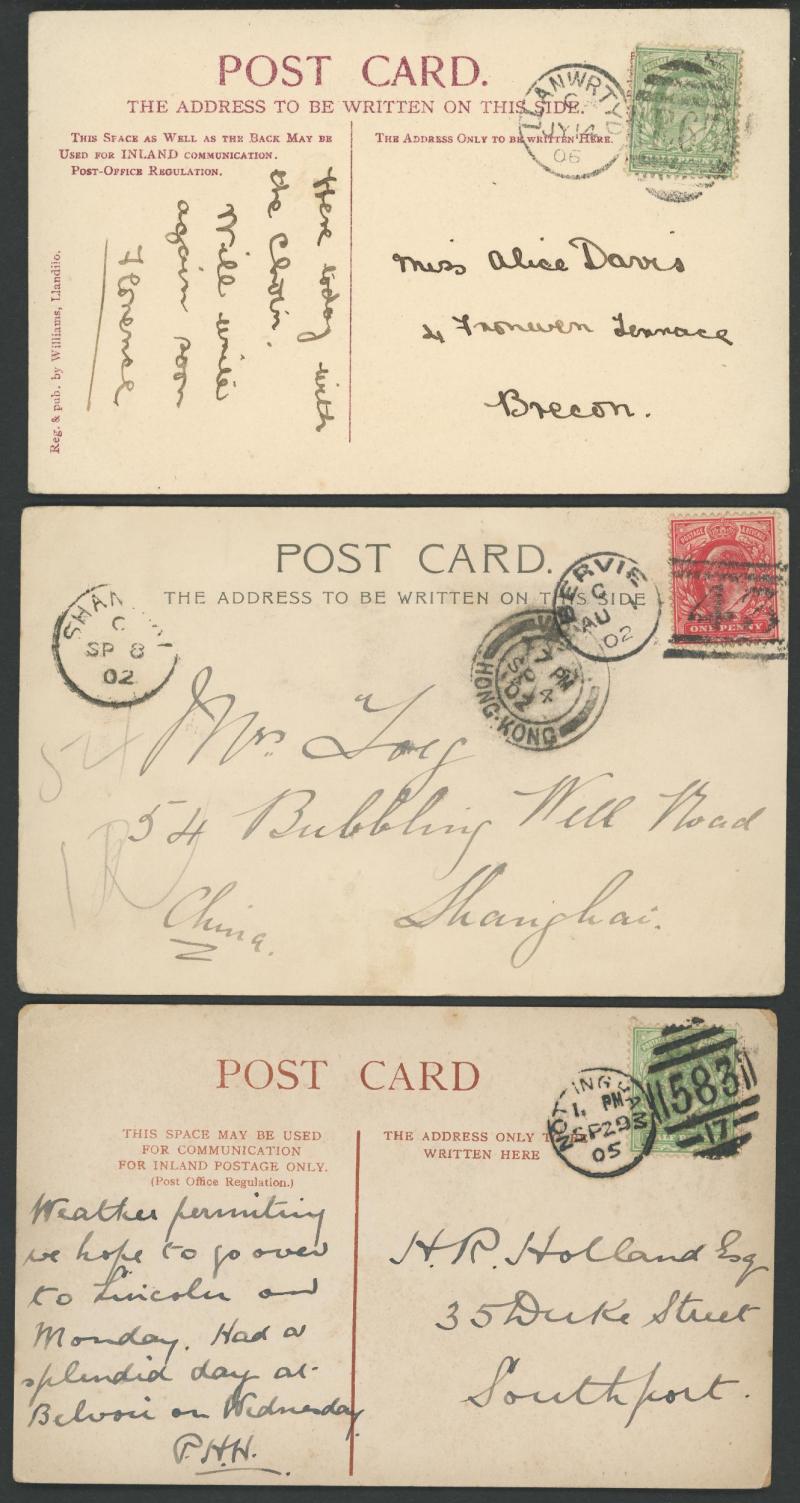 POST CARD.
THE ADDRESS TO BE WRITTEN ON THIS SIDE.
THIS SPACE AS WELL AS THE BACK MAY BE
USED FOR INLAND COMMUNICATION.
POST-OFFICE REGULATION.
THE ADDRESS ONLY TO BE WRITTEN HERE.
LLANWRTYD
C
JY 14
06
Reg. & pub. by Williams, Llandilo.
Here today with
the Choir.
Will write
again soon
Florence
Miss Alice Davis
4 Fronwen Terrace
Brecon.
POST CARD.
THE ADDRESS TO BE WRITTEN ON THIS SIDE
SP 8
02
BERVIE
C
AU
02
HONG-KONG
7 PM
SP 4
02
POSTAGE & REVENUE
ONE PENNY
54
Mrs
54 Bubbling Well Road
Shanghai.
China.
POST CARD
THIS SPACE MAY BE USED
FOR COMMUNICATION
FOR INLAND POSTAGE ONLY.
(Post Office Regulation.)
THE ADDRESS ONLY TO BE
WRITTEN HERE
NOTTINGHAM
1 PM
SP 29
05
583
17
Weather permitting
we hope to go over
to Lincoln on
Monday. Had a
splendid day at
Belvoir on Wednesday
P.H.H.
H. R. Holland Esq
35 Duke Street
Southport.